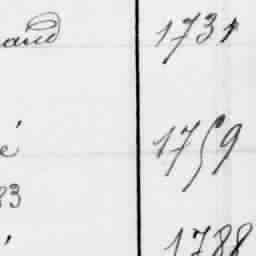 and 1731
é 1759
83
1788